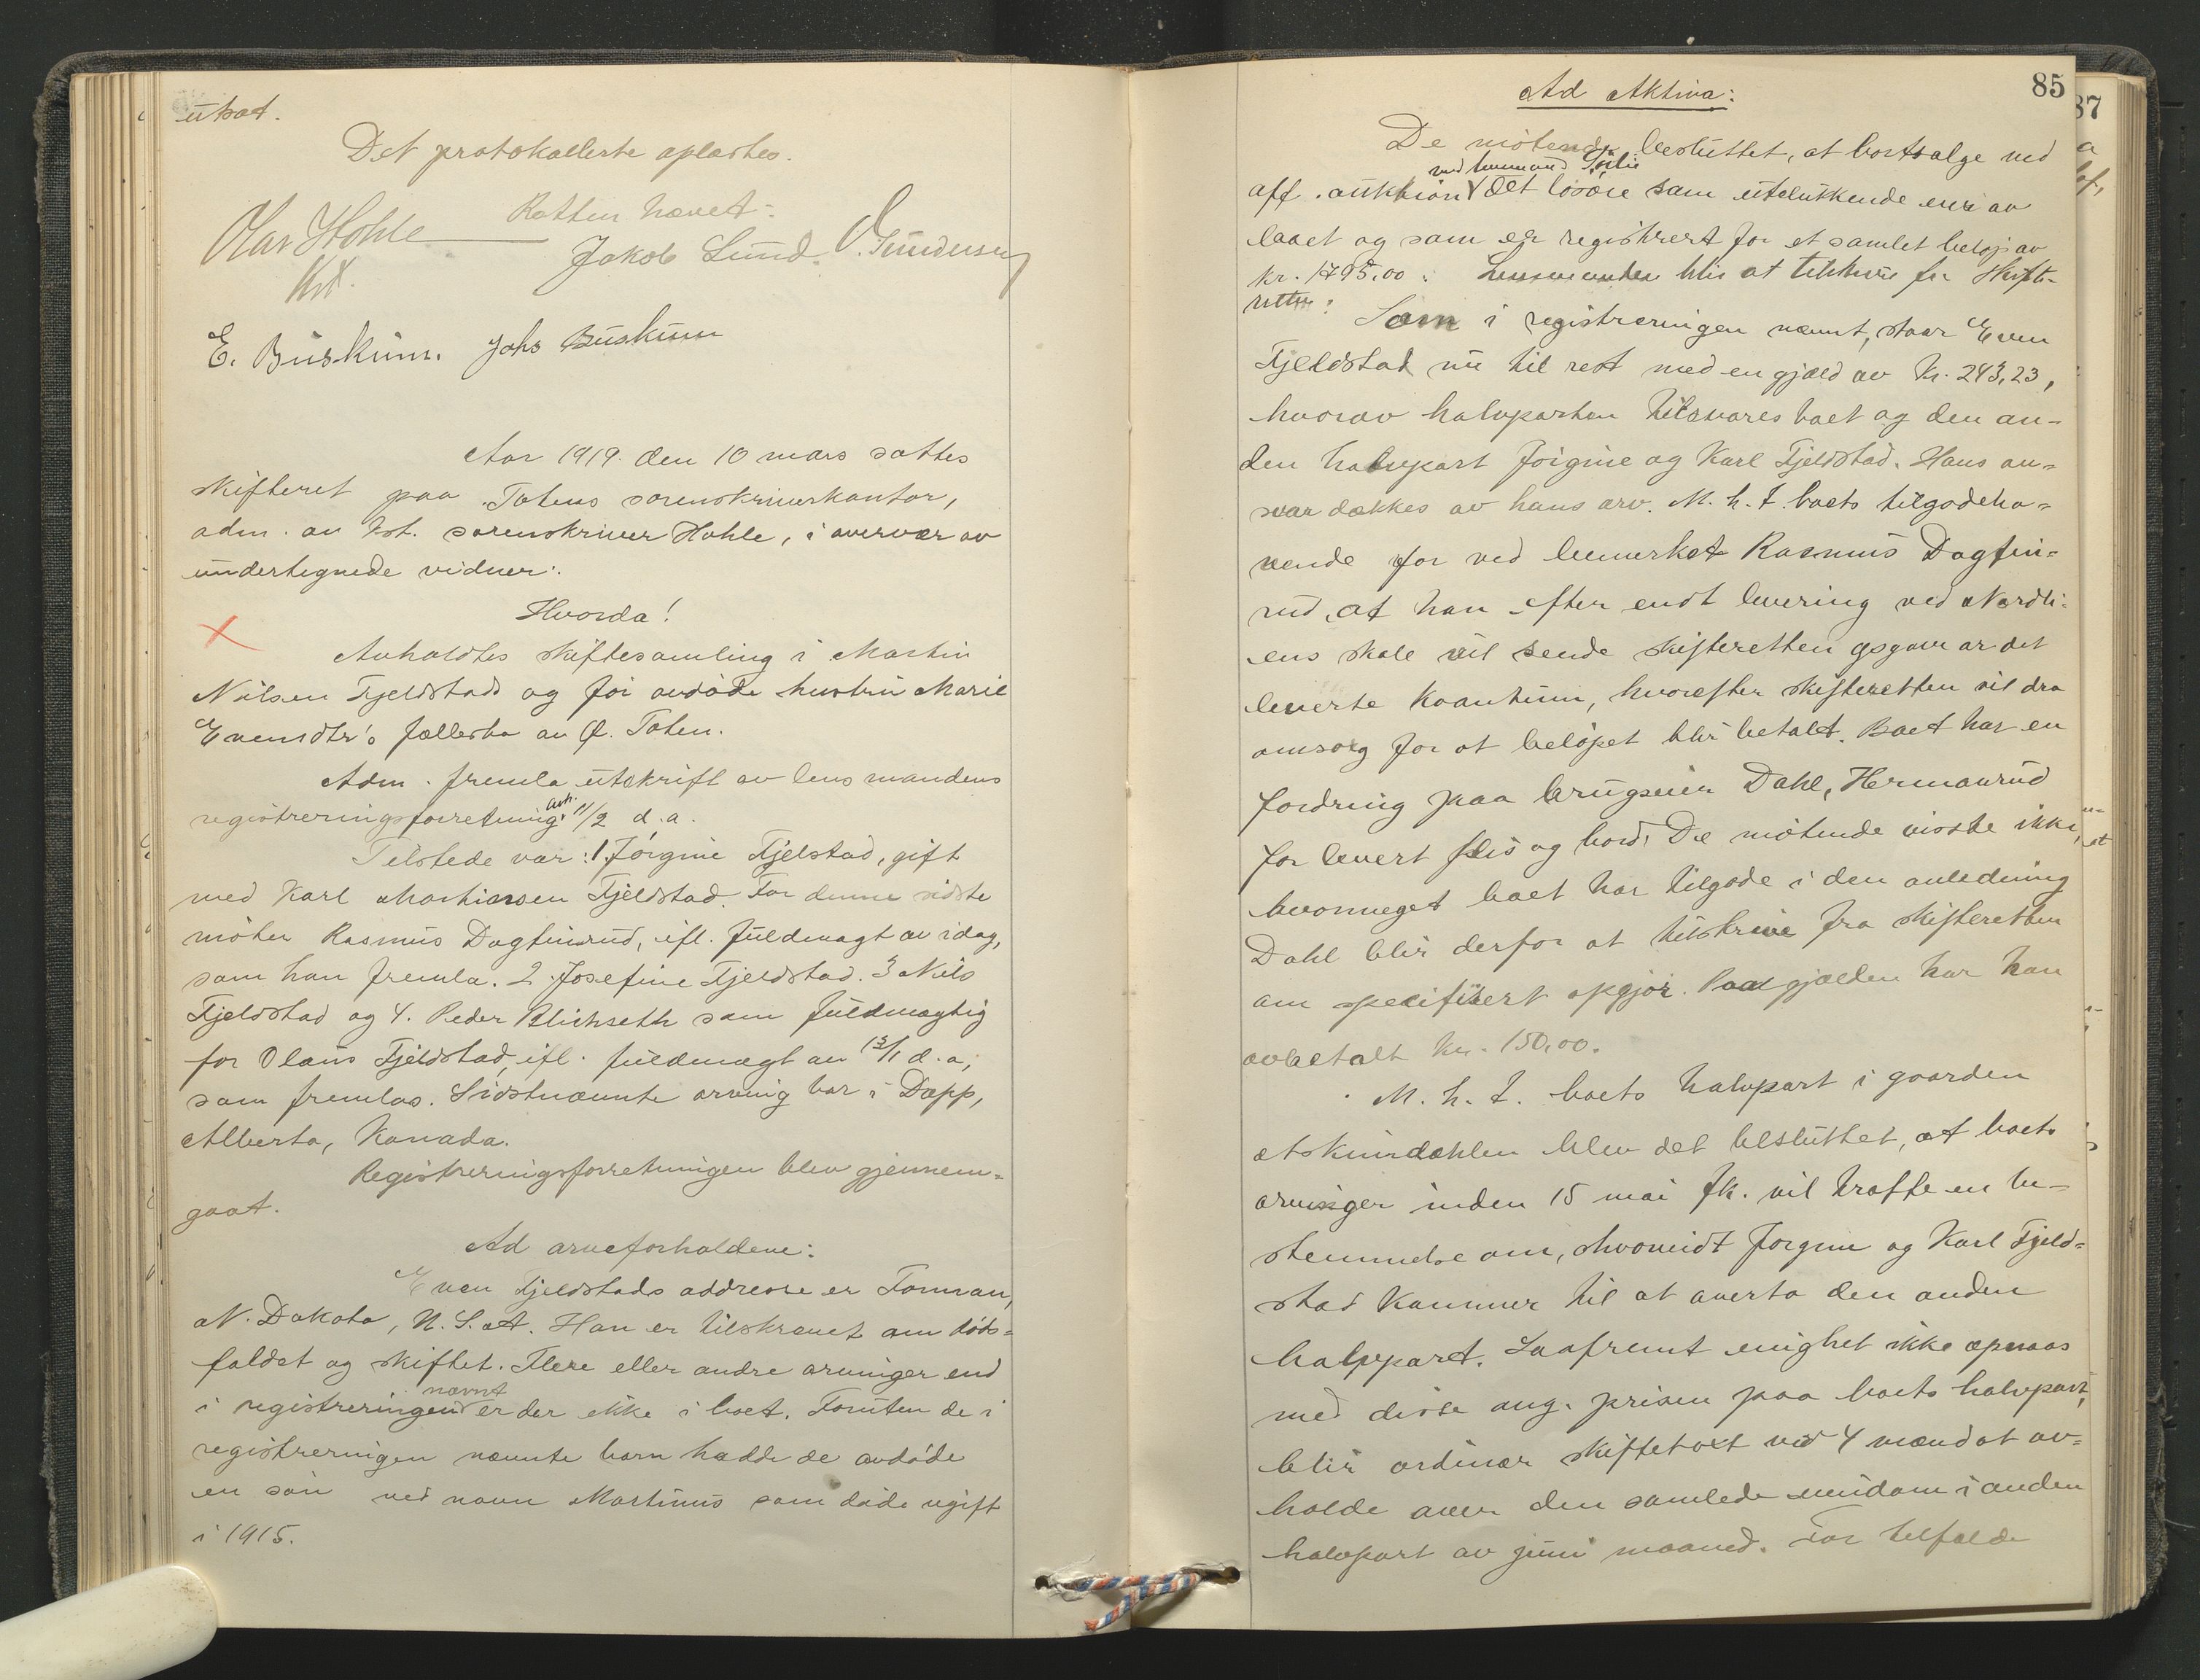 utsat.
Det protokollerte oplæstes.
Retten hævet.
Olav Hohle Jakob Lund. O. Gundersen
kst.
E. Buskum. Johs Buskum
Aar 1919 den 10 mars sattes
skifteret paa Totens sorenskriverkontor,
adm. av kst. sorenskriver Hohle, i overvær av
undertegnede vidner:
Hvorda!
Anholdtes skiftesamling i Martin
Nilsen Fjeldstads og før avdøde hustru Marie
Evensdtr's fællesbo av Ø. Toten.
Adm. fremla utskrift av lensmandens
registreringsforretning avh. 11/2 d.a.
Tilstede var: 1. Jørgine Fjelstad, gift
med Karl Martinsen Fjeldstad. For denne sidste
møter Rasmus Dagfinrud, ifl. fuldmagt av idag,
som han fremla. 2 Josefine Fjeldstad. 3 Nils
Fjeldstad og 4. Peder Blichseth som fuldmægtig
for Olaus Fjeldstad, ifl. fuldmagt av 13/1 d.a.,
som fremlas. Sidstnævnte arving bor i Dapp,
Alberta, Kanada.
Registreringsforretningen blev gjennem-
gaat.
Ad arveforholdene:
Even Fjeldstads addresse er Forman,
N. Dakota, U.S.A. Han er tilskrevet om døds-
faldet og skiftet. Flere eller andre arvinger end
i registreringen nævnt er der ikke i boet. Foruten de i
registreringen nævnte barn hadde de avdøde
en søn ved navn Martinus som døde ugift
i 1915.
85
87
Ad Aktiva:
De møtende besluttet, at bortsælge ved
off. auktion ved lensmand Sørlie det løsøre som utelukkende eies av
boet og som er registrert for et samlet beløp av
kr. 1795.00. Lensmanden blir at tilskrive fra skifte-
retten.
Som i registreringen nævnt, staar Even
Fjeldstad nu til rest med en gjæld av kr. 243,23,
hvorav halvparten tilsvares boet og den an-
den halvpart Jørgine og Karl Fjeldstad. Hans an-
svar dækkes av hans arv. M.h.t. boets tilgodeha-
vende for ved bemerket Rasmus Dagfin-
rud, at han efter endt levering ved Nordli-
ens skole vil sende skifteretten opgave av det
leverte kvantum, hvorefter skifteretten vil dra
omsorg for at beløpet blir betalt. Boet har en
fordring paa brugseier Dahl, Hermanrud
for levert flis og bord. De møtende visste ikke,
hvormeget boet har tilgode i den anledning
Dahl blir derfor at tilskrive fra skifteretten
om specifisert opgjør. Paa gjælden har han
avbetalt kr. 150,00.
M.h.t. boets halvpart i gaarden
blev det besluttet, at boets
arvinger inden 15 mai fk. vil træffe en be-
stemmelse om, hvorvidt Jørgine og Karl Fjeld-
stad kommer til at overta den anden
halvpart. Saafremt enighet ikke opnaaes
med disse ang. prisen paa boets halvpart,
blir ordinær skiftetakst ved 4 mænd at av-
holde over den samlede eiendom i anden
halvpart av juni maaned. For tilfælde